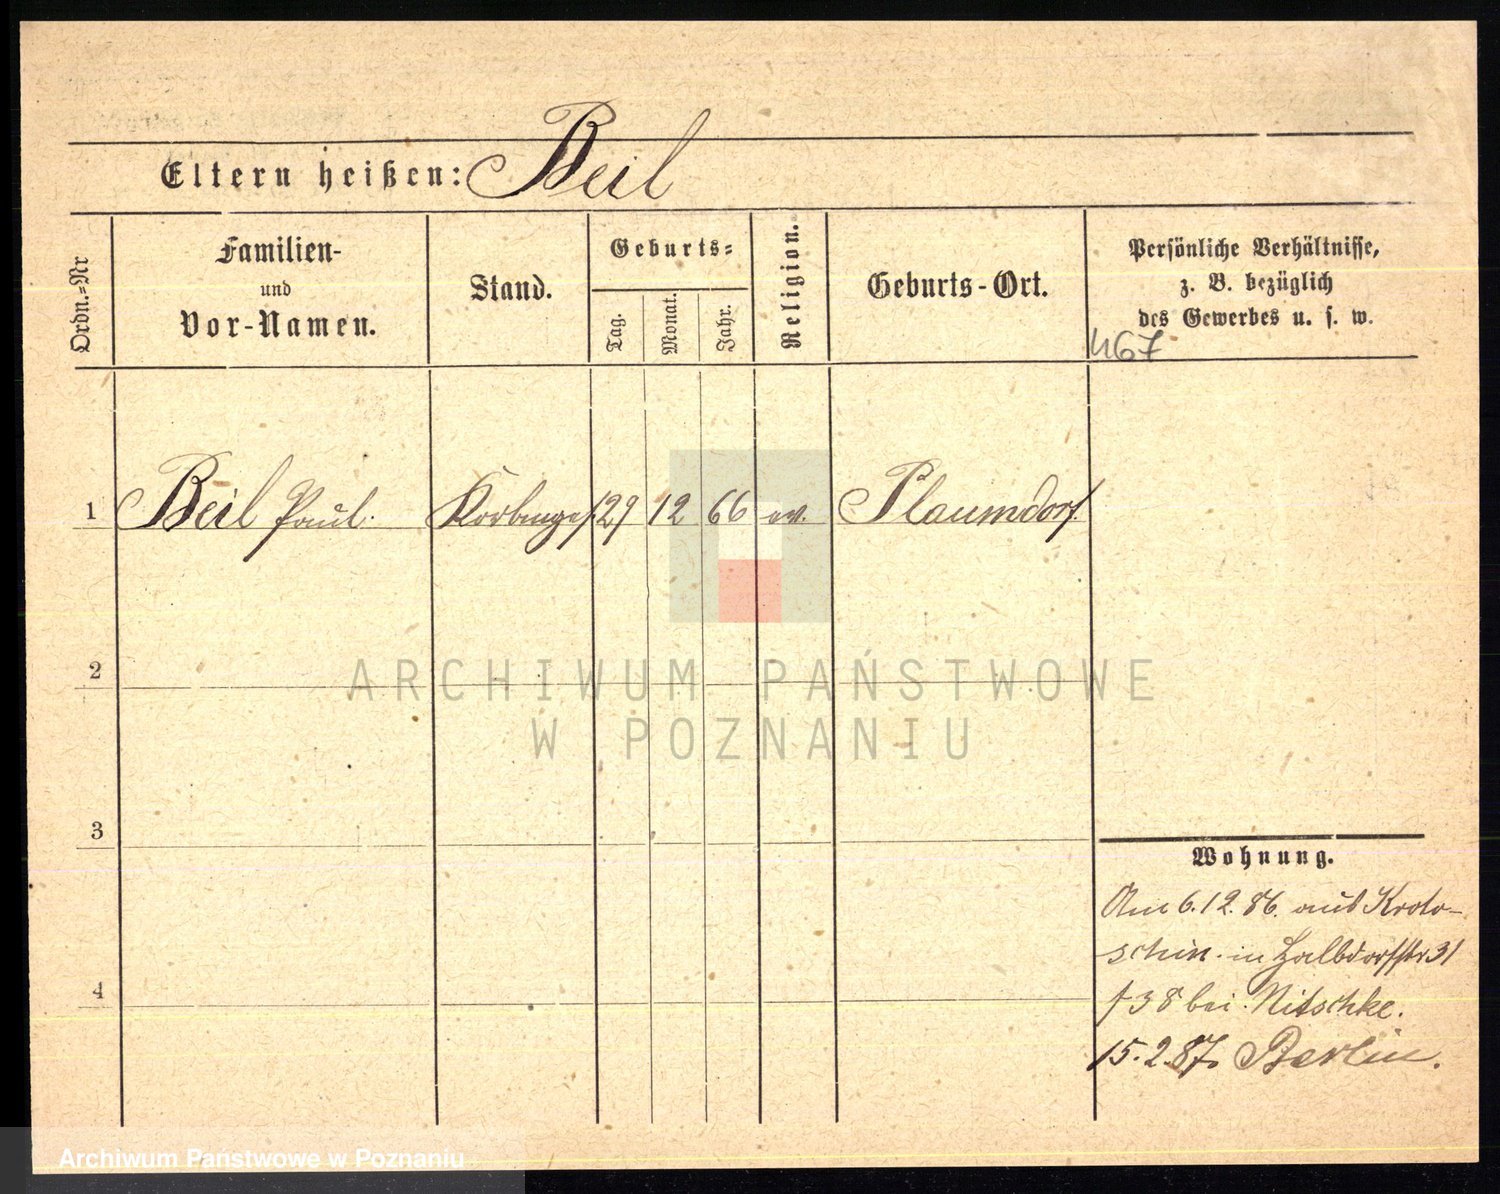 Eltern heißen: Beil
Ordn.-Nr
Familien-
und
Vor-Namen.
Stand.
Geburts-
Tag.
Monat.
Jahr.
Religion.
Geburts-Ort.
Persönliche Verhältnisse,
z. B. bezüglich
des Gewerbes u. s. w.
467
1 Beil Paul. Korbmges. 29 12 66 ev.
2
3
4
Wohnung.
Am 6.12.86. aus Kroto-
schin. in Halbdorfstr 31
f 38 bei Nitschke.
15.2.87. Berlin.
ARCHIWUM PAŃSTWOWE
W POZNANIU
Archiwum Państwowe w Poznaniu